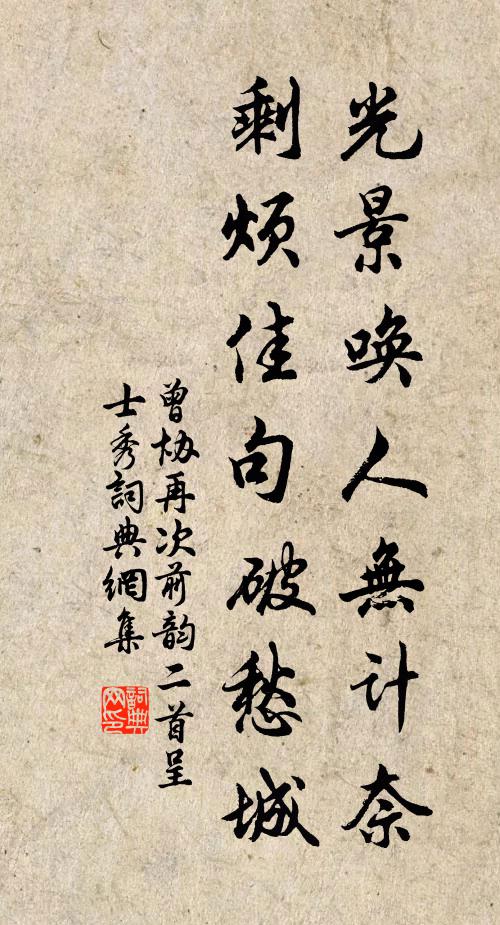 光景喚人無計奈
剩煩佳句破愁城
曾協再次前韵二首呈
士秀詞典網集
詞典网印